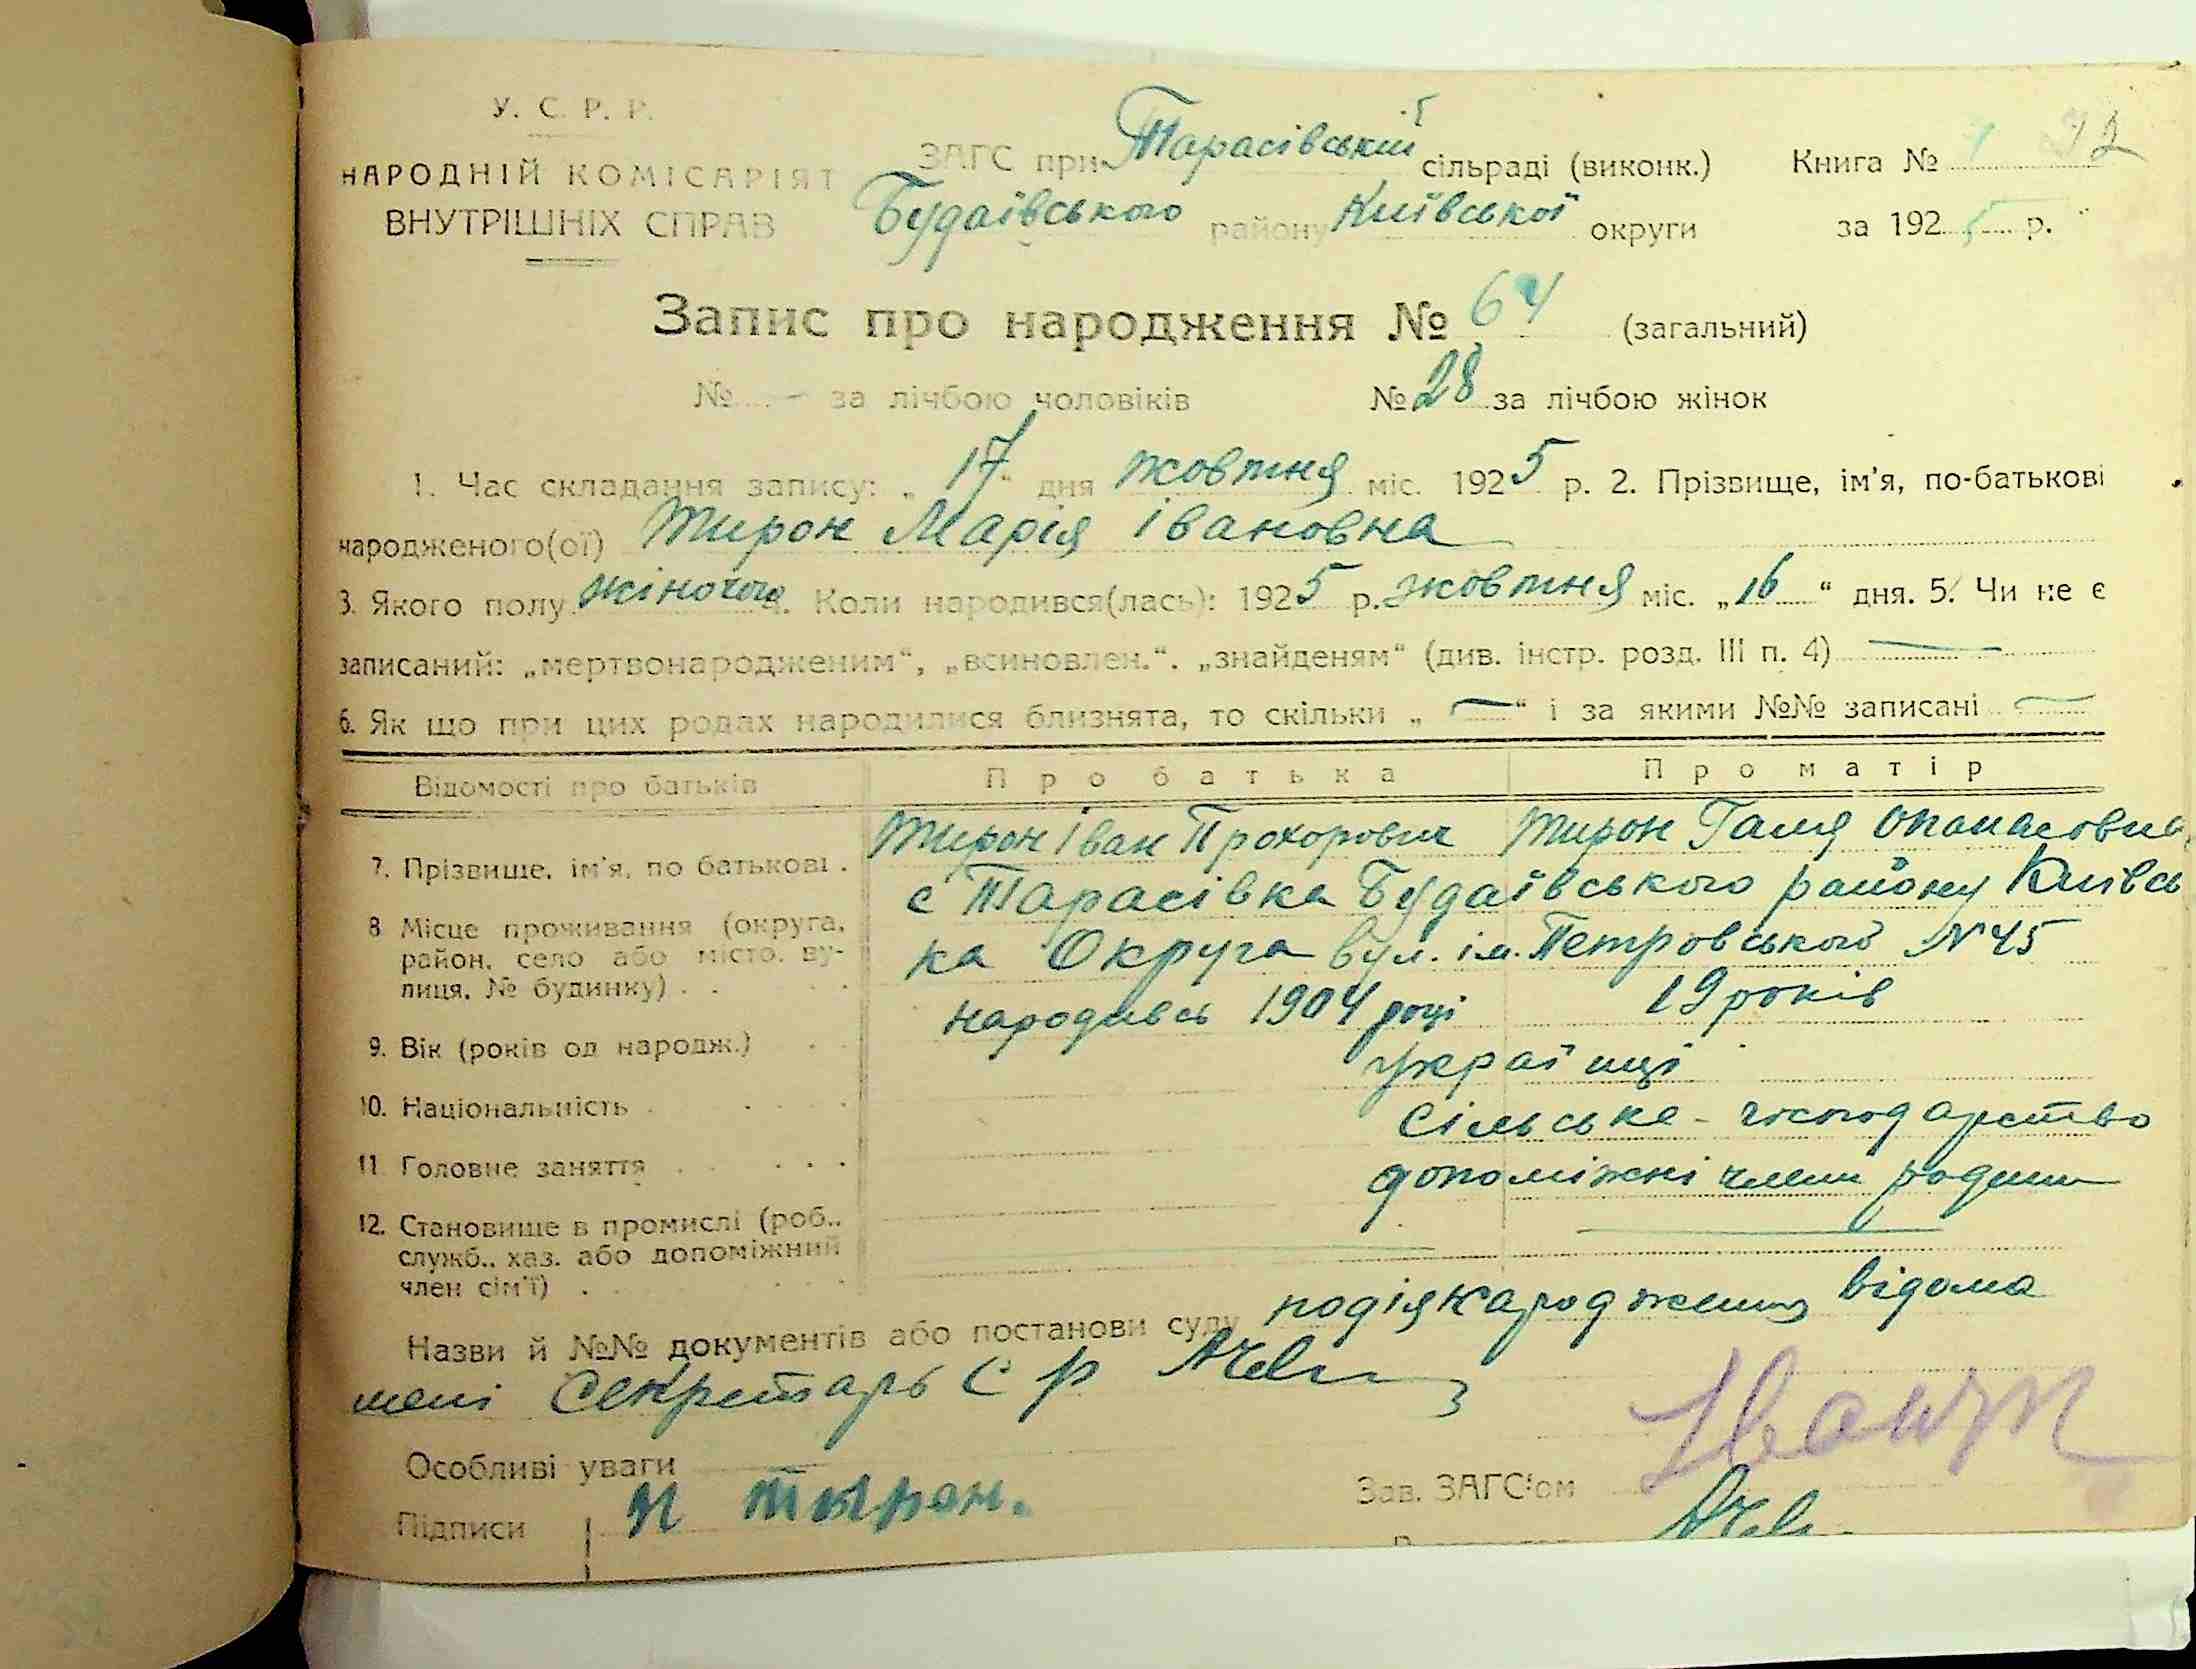 У. С. Р. Р.
НАРОДНІЙ КОМІСАРІЯТ
ВНУТРІШНІХ СПРАВ
ЗАГС при Тарасівській сільраді (виконк.)
Будаївського району Київської округи
Книга № 1 32
за 1925 р.
Запис про народження № 64 (загальний)
№ – за лічбою чоловіків № 28 за лічбою жінок
1. Час складання запису: „17“ дня жовтня міс. 1925 р. 2. Прізвище, ім'я, по-батькові
народженого(ої) Тирон Марія Івановна
3. Якого полу жіночого 4. Коли народився(лась): 1925 р. жовтня міс. „16“ дня. 5. Чи не є
записаний: „мертвонародженим“, „всиновлен.“. „знайденям“ (див. інстр. розд. III п. 4) —
6. Як що при цих родах народилися близнята, то скільки „—“ і за якими №№ записані —
Відомості про батьків Про батька Про матір
7. Прізвище, ім'я, по батькові . Тирон Іван Прохорович Тирон Галя Опанасовна
8 Місце проживання (округа, район, село або місто, вулиця, № будинку) . . с Тарасівка Будаївського району Київсь
ка Округа вул. ім. Петровського № 45
9. Вік (років од народж.) . . народивсь 1904 році 19 років
10. Національність . . . . українці
11. Головне заняття . . . . сільське-господарство
12. Становище в промислі (роб.. служб.. хаз. або допоміжний член сім'ї) . допоміжні члени родини
Назви й №№ документів або постанови суду подія народження відома
мені Секретарь С Р
Особливі уваги
Підписи И тырон.
Зав. ЗАГС'ом